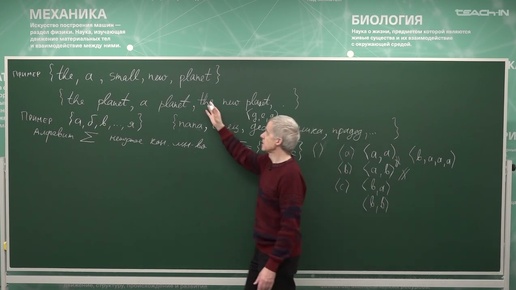 МЕХАНИКА
Искусство построения машин —
раздел физики. Наука, изучающая
движение материальных тел
и взаимодействия между ними.
TEACH-IN
БИОЛОГИЯ
Наука о жизни, предметом которой являются
живые существа и их взаимодействие
с окружающей средой.
Пример {the, a, small, new, planet}
{the planet, a planet, the new planet, ..}
Пример {а, б, в, ..., я} {папа,
Алфавит Σ непустое кон. мн-во
( ) (a) (a, a) (b, a, a, a)
(b) (a, b)
(c) (b, a)
(b, b)